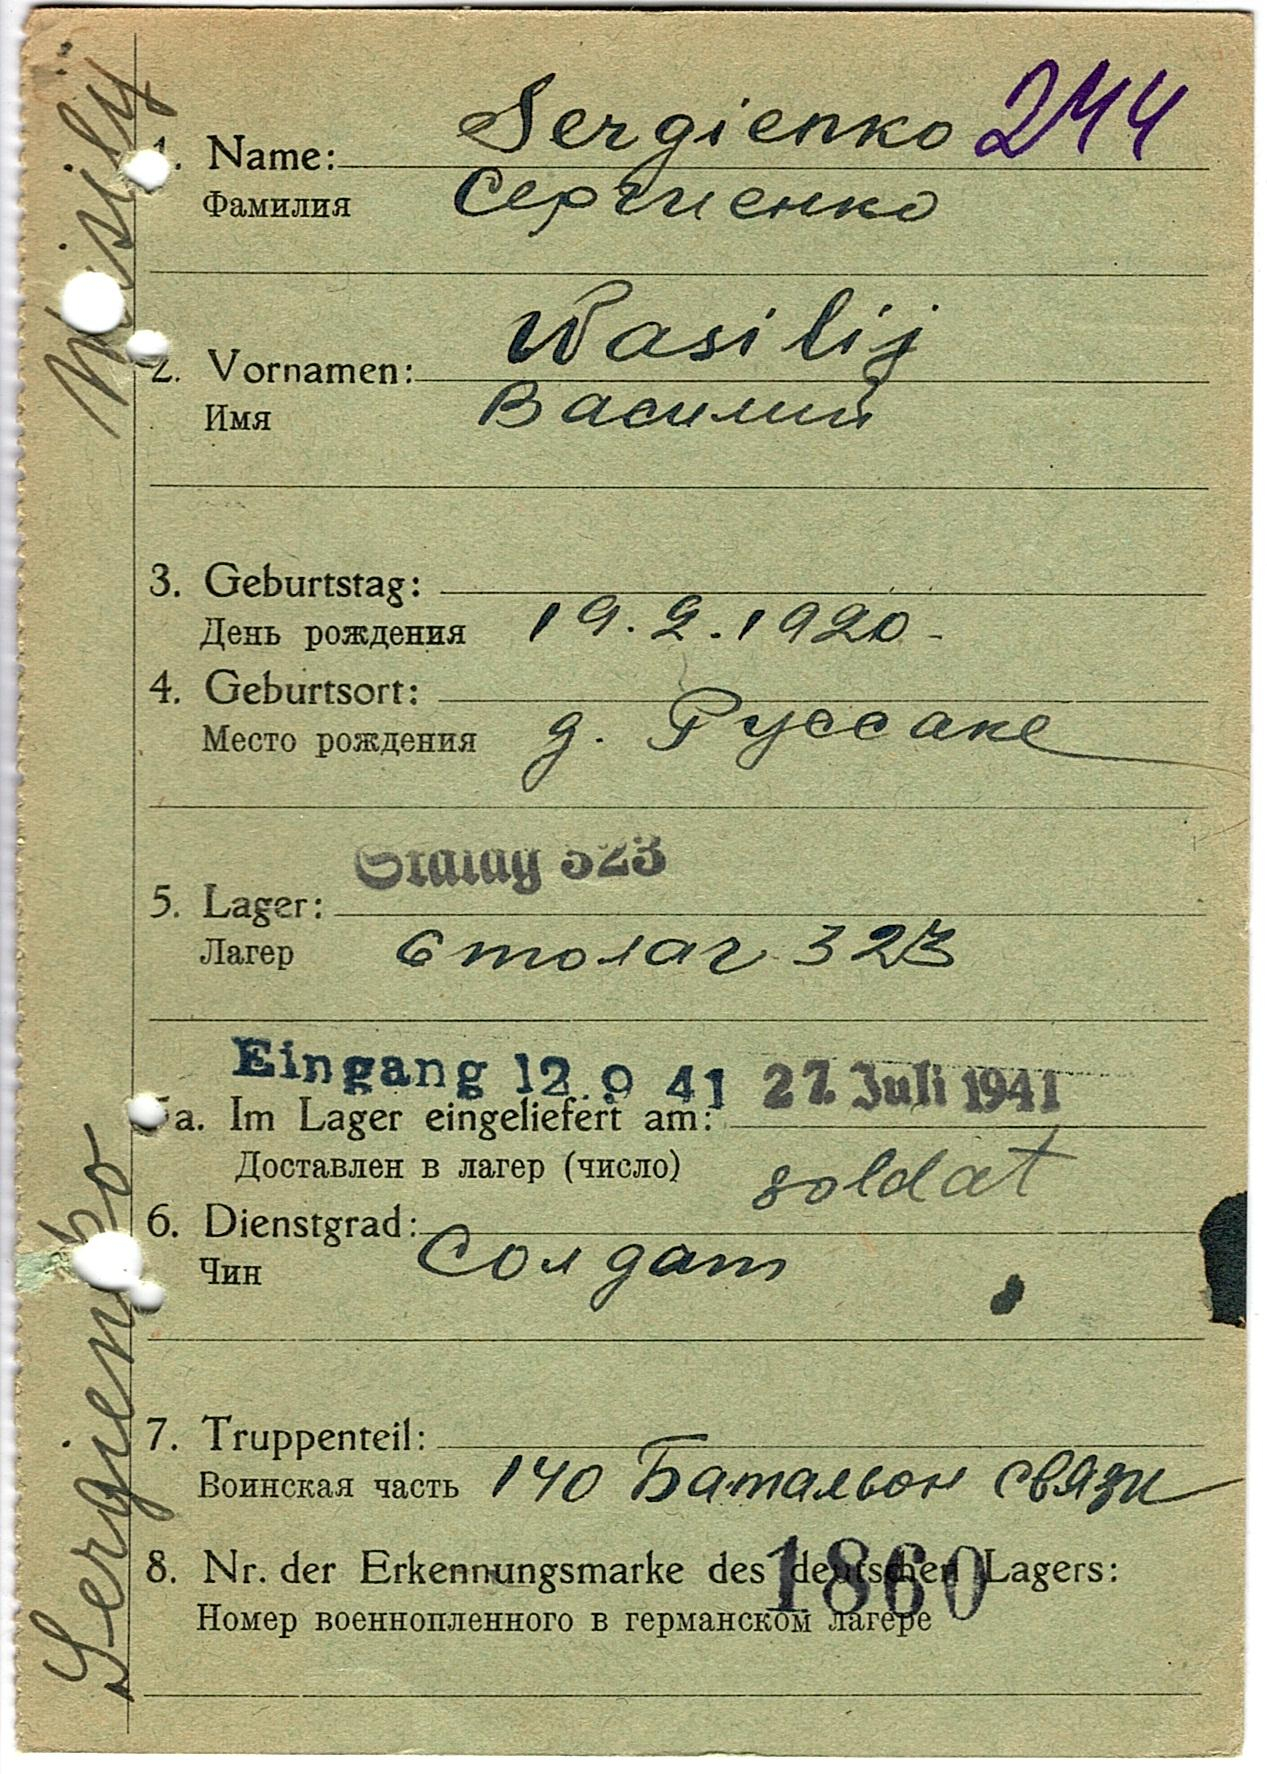 244
1. Name: Sergienko
Фамилия Сергиенко
2. Vornamen: Wasilij
Имя Василий
3. Geburtstag:
День рождения 19.2.1920.
4. Geburtsort:
Место рождения д. Руссаке
Stalag 323
5. Lager:
Лагер столаг 323
Eingang 12.9 41 27. Juli 1941
5a. Im Lager eingeliefert am:
Доставлен в лагер (число)
soldat
6. Dienstgrad:
Чин Солдат
7. Truppenteil:
Воинская часть 140 Батальон связи
8. Nr. der Erkennungsmarke des deutschen Lagers:
1860
Номер военнопленного в германском лагере
Sergienko Wasilij